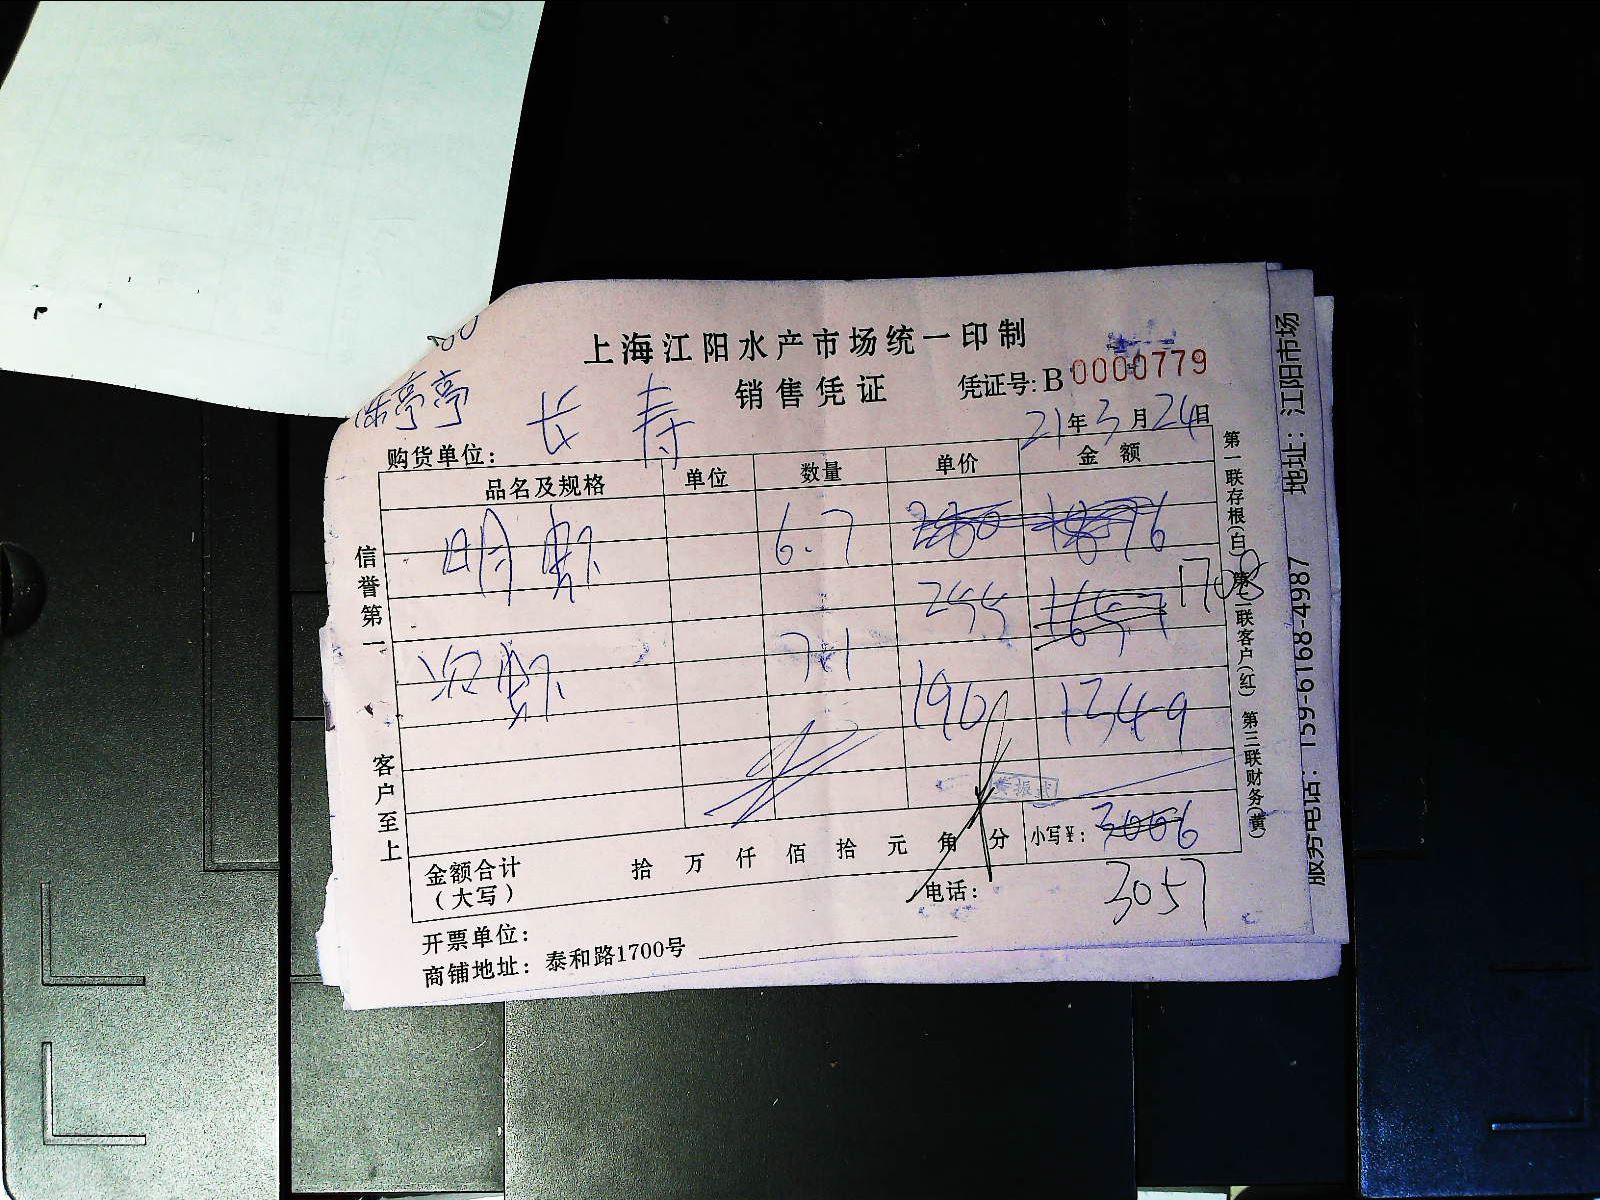 上海江阳水产市场统一印制
销售凭证 凭证号: B 0000779
亭亭
购货单位: 长寿 21年3月24日
品名及规格 单位 数量 单价 金额
明虾 6.7 280 1876
255 1657 1708
沼虾 7.1 190 1349
金额合计(大写) 拾 万 仟 佰 拾 元 角 分 小写¥: 3006
3057
电话:
开票单位:
商铺地址: 泰和路1700号
信誉第一 客户至上
第一联存根(白) 第二联客户(红) 第三联财务(黄)
服务电话: 159-6168-4987 地址: 江阳市场